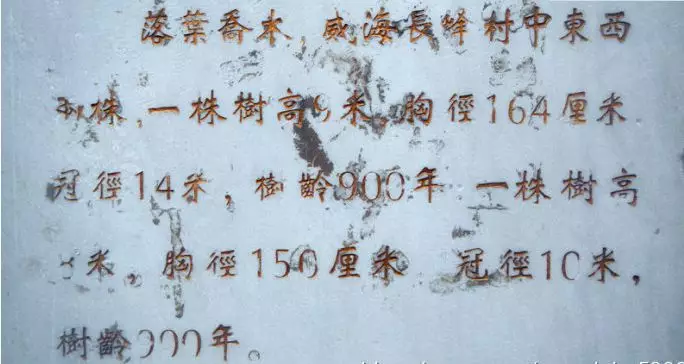 落葉喬木 威海長峰村中東西
株,一株樹高9米,胸徑164厘米
冠徑14米,樹齡900年 一株樹高
米。胸徑150厘米 冠徑10米,
樹齡900年。